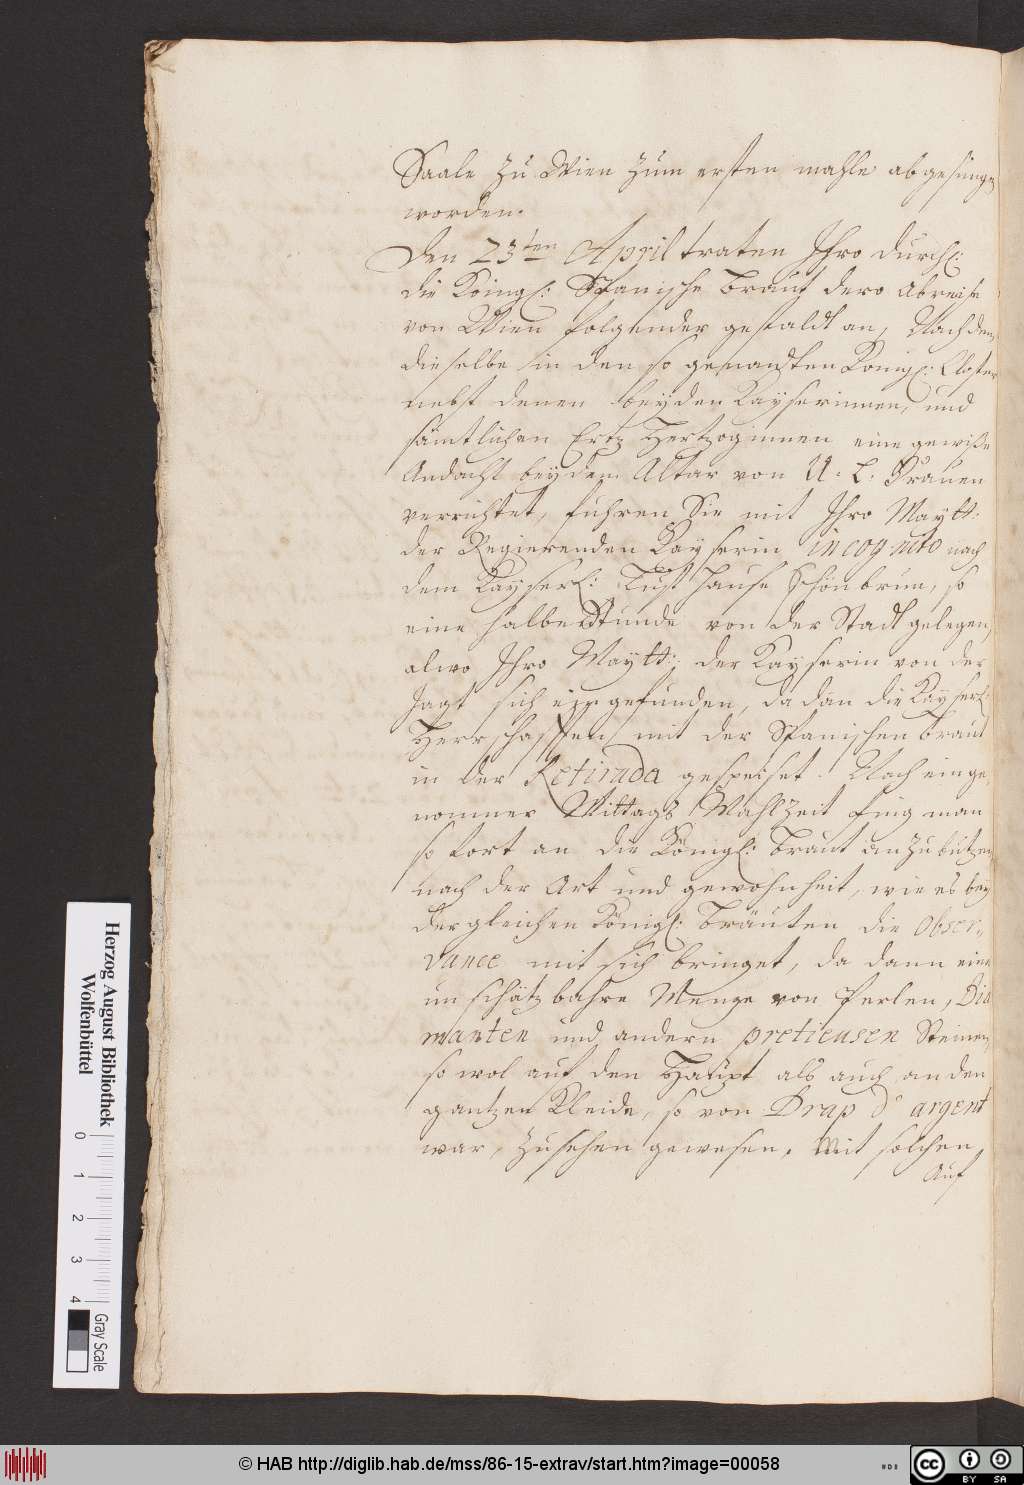 Saale zu Wien zum ersten mahle abgesungen
worden.
Den 23ten April traten Ihro Durchl:
die Königl: Spanische Braut dero Abreise
von Wien folgender gestaldt an, Nachdem
dieselbe in den so genandten Königl: Closter
nebst denen beyden Kayserinnen, und
sämtlichen Ertz Hertzoginnen eine gewiße
Andacht bey dem Altar von U. L. Frauen
verrichtet, fuhren Sie mit Ihro Maytt:
der Regierenden Kayserin incognito nach
dem Kayserl: Lust Hause Schönbrun, so
eine halbe Stunde von der Stadt gelegen,
alwo Ihro Maytt: der Kayserin von der
Jagt sich eingefunden, da dan die Kayserl:
Herrschafften mit der Spanischen Braut
in der Retirada gespeiset. Nach einge
nomner Mittags Mahlzeit fing man
so fort an die Königl: Braut anzubutzen
nach der Art und gewohnheit, wie es bey
dergleichen Königl: Bräuten die Obser-
vance mit sich bringet, da dann eine
unschätzbahre Menge von Perlen, Dia
manten und andern pretieusen Steinen,
so wol auf den Haupt als auch an den
gantzen Kleide, so von Drap d' argent
war, zusehen gewesen. Mit solchen
Auf
Herzog August Bibliothek
Wolfenbüttel
0 1 2 3 4
Gray Scale
© HAB http://diglib.hab.de/mss/86-15-extrav/start.htm?image=00058
cc BY SA